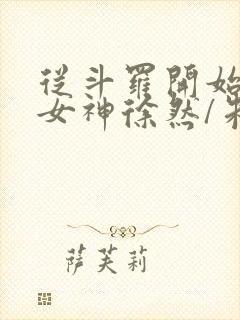 從斗羅開始
女神徐然/
萨芙莉